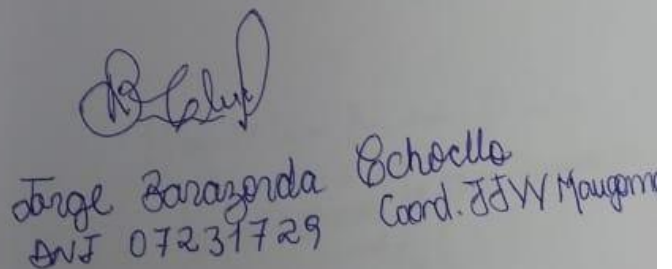 Jorge Barazorda Echaello
DNI 07231729 Coord. JJVV Mangoma